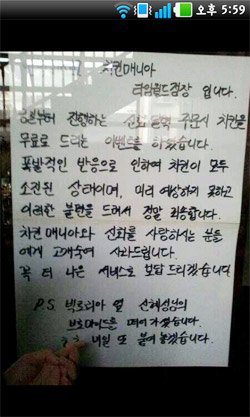 오후 5:59
치킨매니아
점장 입니다.
진행하는 신화 주문시 치킨을
무료로 드리는 이벤트를 하였습니다.
폭발적인 반응으로 인하여 치킨이 모두
소진된 상태이며, 미리 예상하지 못하고
이러한 불편을 드려서 정말 죄송합니다.
치킨매니아와 신화를 사랑하는 분들
에게 고개숙여 사과드립니다.
꼭 더 나은 서비스로 보답 드리겠습니다.
P.S. 빅토리아 옆 신혜성님의
브로마이드를 떼어 가셨습니다
내일 또 붙여 놓겠습니다.